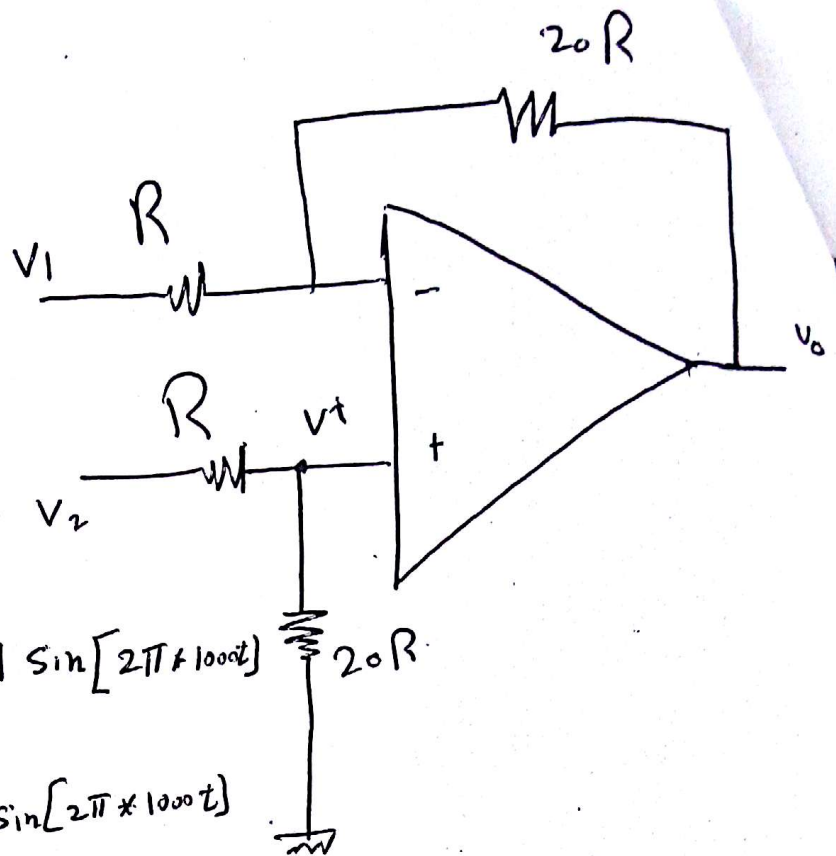 20R
R
V1
-
V0
R
V+
+
V2
Sin[2π*1000t]
20R
Sin[2π*1000t]